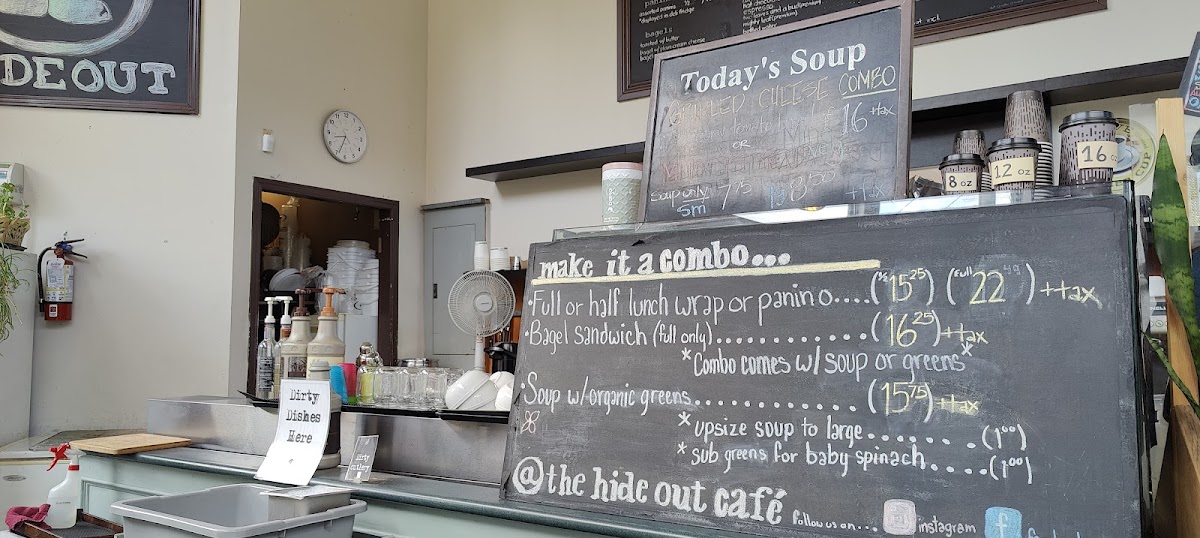 DEOUT
bagels
toasted w/ butter
espresso
Today's Soup
GRILLED CHEESE COMBO
16 +tax
OR
Soup only 7.75 8.50 +tax
sm
8 oz
12 oz
16 oz
make it a combo...
·Full or half lunch wrap or panino....(½ 15²⁵) (full 22⁴⁹) ++tax
·Bagel sandwich (full only)............(16²⁵)++tax
*Combo comes w/ soup or greens*
·Soup w/organic greens................(15⁷⁵)++tax
*upsize soup to large........(1⁰⁰)
*sub greens for baby spinach.....(1⁰⁰)
@the hide out café follow us on... instagram
f
Dirty
Dishes
Here
Dirty
cutlery